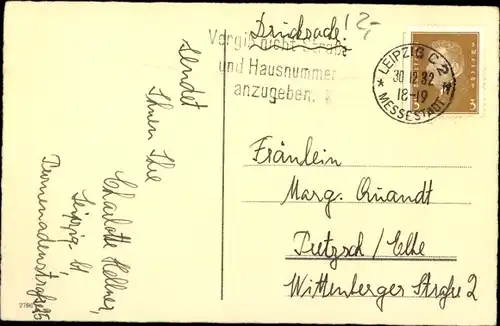 Drucksache! 2,-
Vergiß nicht Straße
und Hausnummer
anzugeben.
LEIPZIG C 2
30.12.32
18-19
MESSESTADT
3 3
sendet
Ihnen Ihre
Charlotte Hellner,
Leipzig
Promenadenstraße
Fräulein
Marg. Quandt
Pretzsch/Elbe
Wittenberger Straße 2